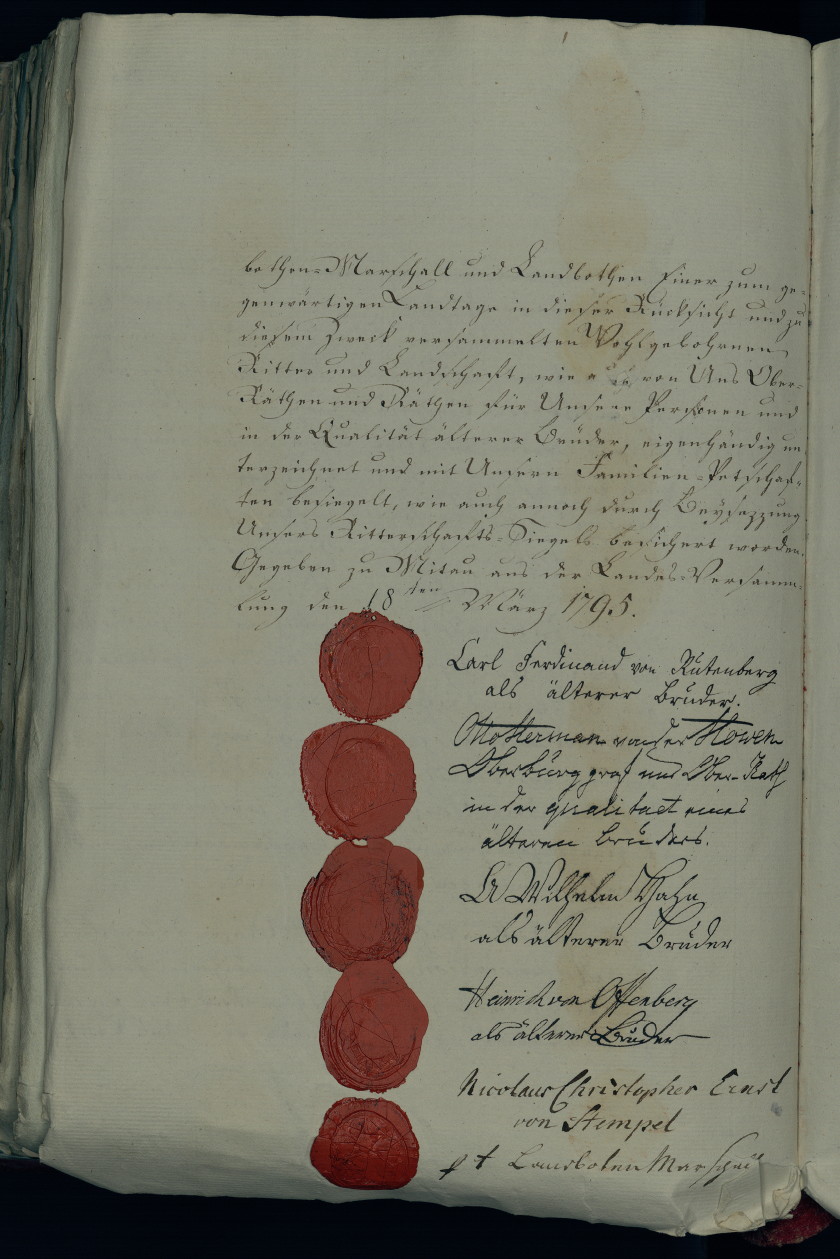 bothen-Marschall und Landbothen Einer zum ge-
genwärtigen Landtage in dieser Rücksicht und zu
diesem Zweck versammelten Wohlgebohrnen
Ritter und Landschaft, wie auch von Uns Ober-
Räthen und Räthen für Unsere Personen und
in der Qualität älterer Brüder, eigenhändig un
terzeichnet und mit Unsern Familien-Petschaf-
ten besiegelt, wie auch annoch durch Beysezzung
Unsers Ritterschafts-Siegels besichert worden.
Gegeben zu Mitau aus der Landes-Versamm-
lung den 18ten März 1795.
Carl Ferdinand von Rutenberg
als älterer Bruder.
Otto Herman von der Howen
Oberburggraf und Ober-Rath
in der qualitaet eines
älteren Bruders.
Wilhelm Hahn
als älterer Bruder
Heinrich von Offenberg
als älterer Bruder
Nicolaus Christopher Ernst
von Stempel
p t Landboten Marschall